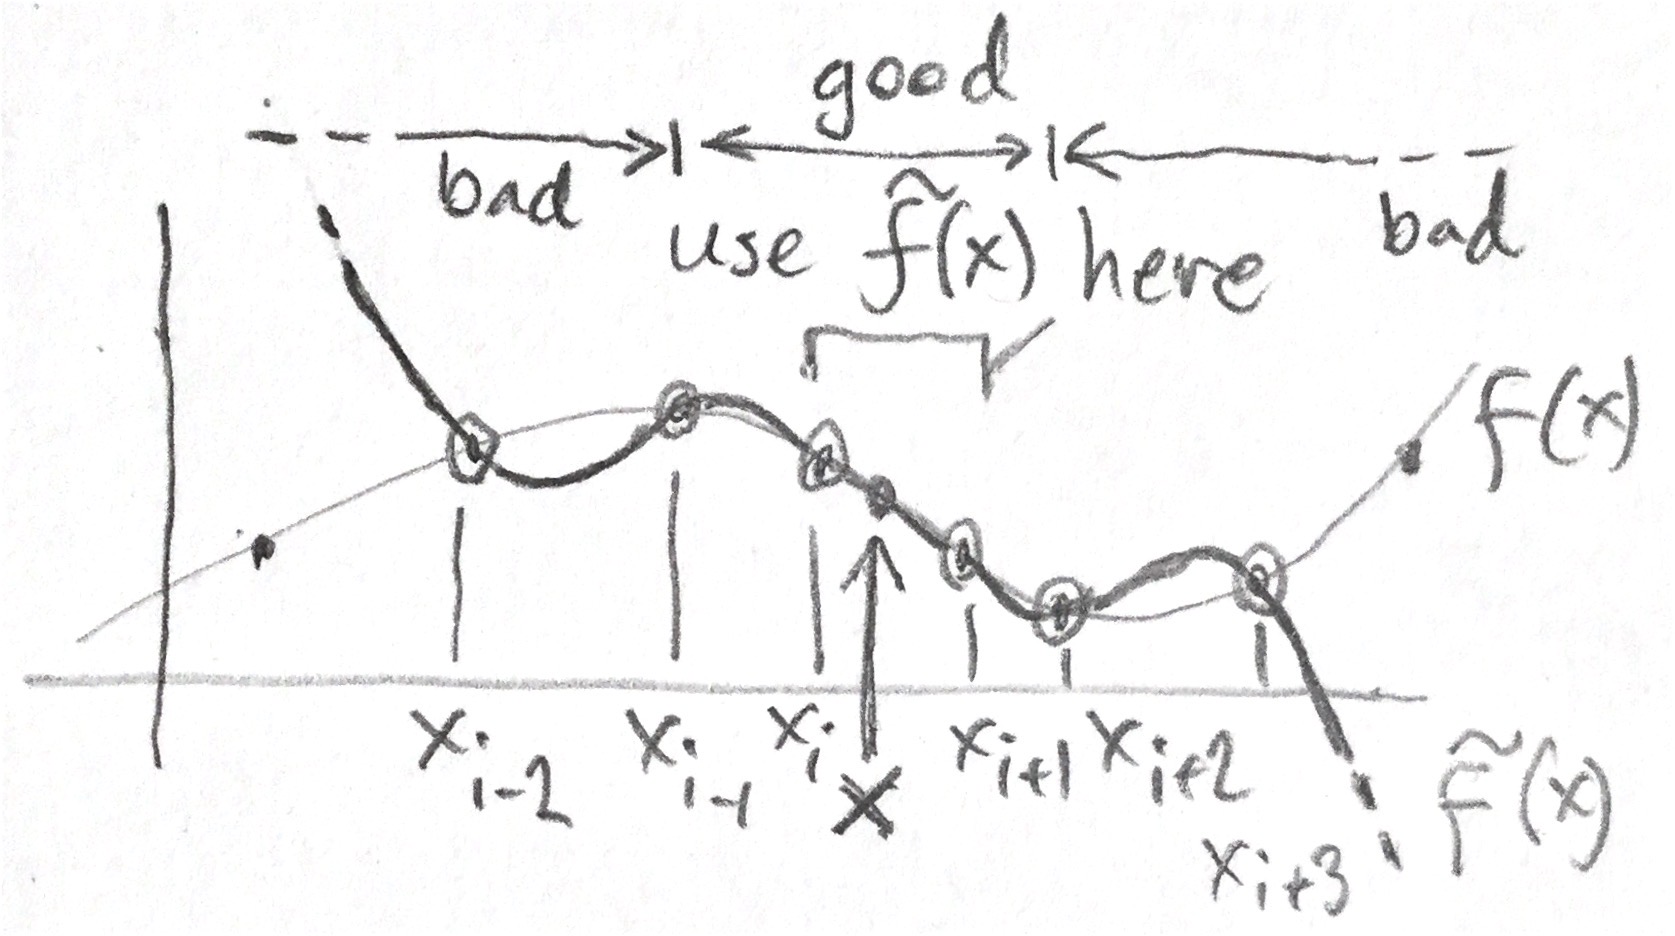 good
bad
bad
use f̃(x) here
f(x)
xᵢ₋₂ xᵢ₋₁ xᵢ x xᵢ₊₁ xᵢ₊₂
xᵢ₊₃
f̃(x)